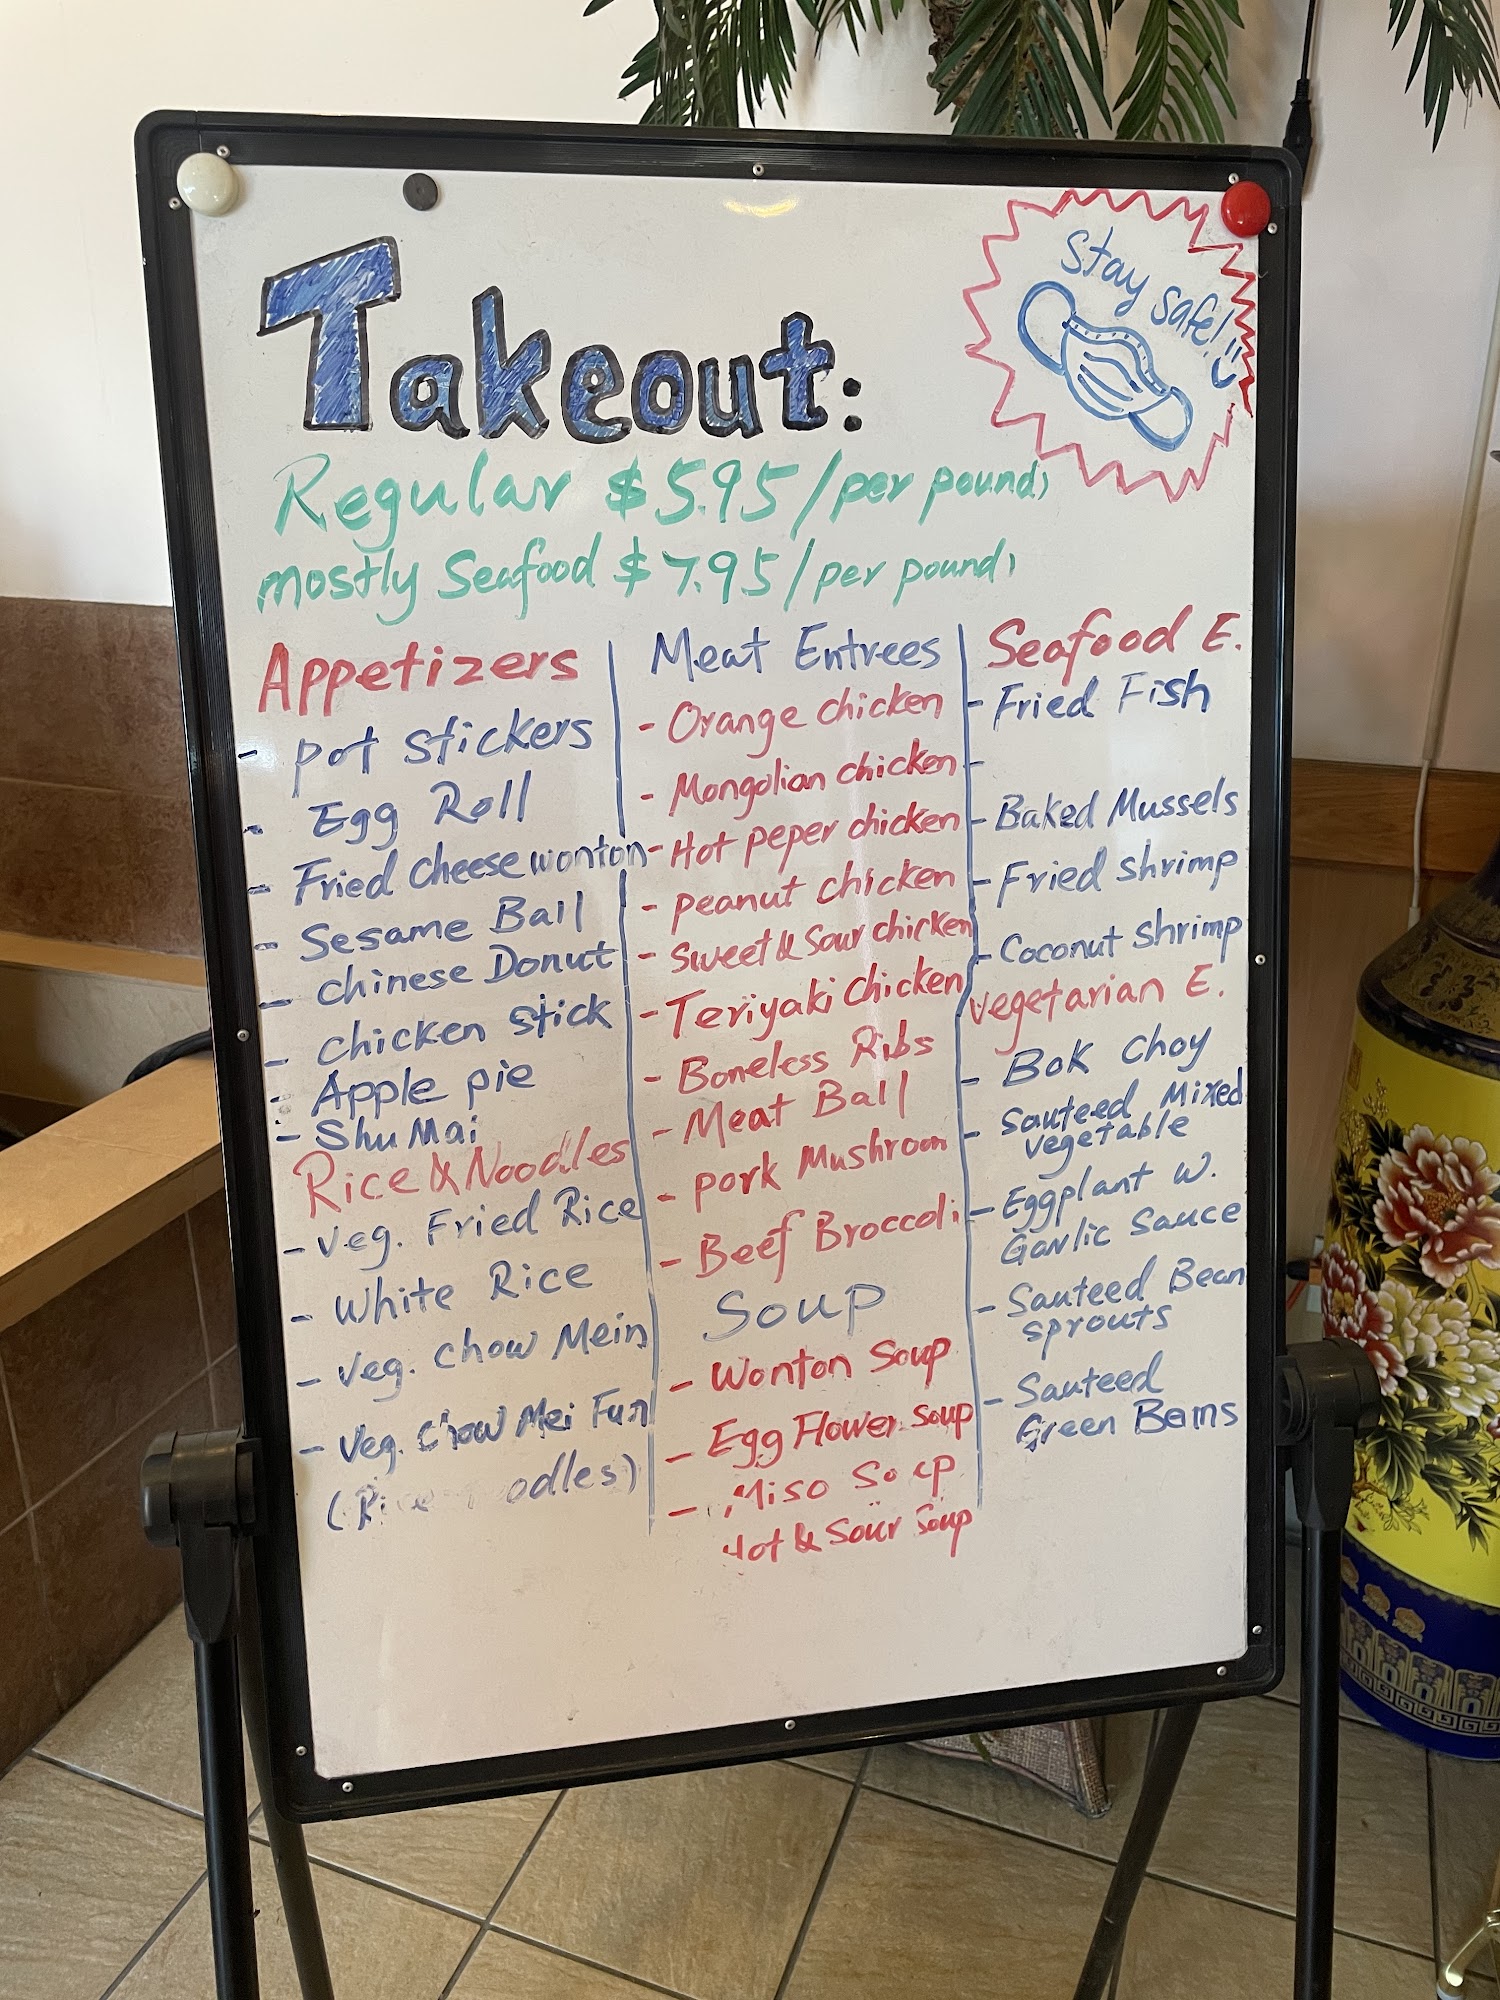 Takeout:
Stay safe!
Regular $5.95/per pound,
mostly Seafood $7.95/per pound,
Appetizers
- pot stickers
- Egg Roll
- Fried cheese wonton
- Sesame Ball
- chinese Donut
- chicken stick
- Apple pie
- Shu Mai
Rice & Noodles
- Veg. Fried Rice
- White Rice
- Veg. chow Mein
- Veg. chow Mei Fun
(Rice
Meat Entrees
- Orange chicken
- Mongolian chicken
- Hot peper chicken
- peanut chicken
- Sweet & Sour chicken
- Teriyaki chicken
- Boneless Ribs
- Meat Ball
- pork Mushroom
- Beef Broccoli
Soup
- Wonton Soup
- Egg Flower soup
- Miso Soup
Hot & Sour Soup
Seafood E.
- Fried Fish
-
- Baked Mussels
- Fried shrimp
- Coconut shrimp
vegetarian E.
- Bok choy
- Sauteed Mixed
vegetable
- Eggplant w.
Garlic Sauce
- Sauteed Bean
sprouts
- Sauteed
Green Beans